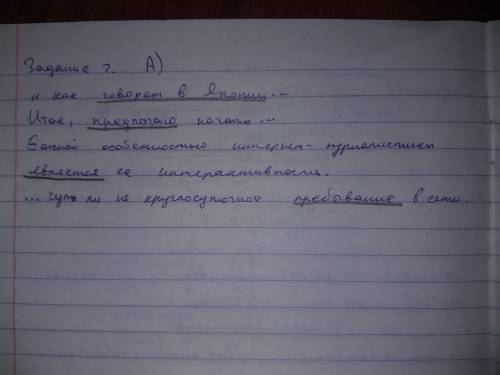 Задание 2. А)
и как говорят в Японии...
Итак, предлагаю начать...
особенностью интернет-журналистики
является ее интерактивность.
... чуть ли не круглосуточное пребывание в сети.